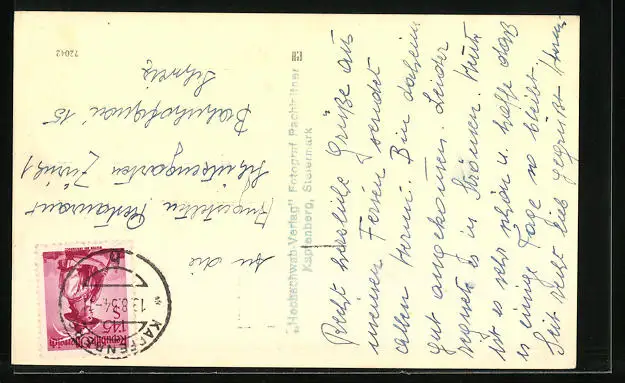 Recht herzliche Grüße aus
meinen Ferien sendet
allen Hermi. Bin daheim
gut angekommen. Leider
regnete es in Strömen. Heute
ist es sehr schön u. hoffe daß
es einige Tage so bleibt.
Seit recht lieb gegrüßt Hermi
"Hochschwab Verlag" Fotograf Pachleitner
Kapfenberg, Steiermark
72042
An die
Angestellten Restaurant
Schützengarten Zürich 1
Bahnhofquai 15
Schweiz
KAPFENBERG
13.8.54
1.45
S
Republik Österreich